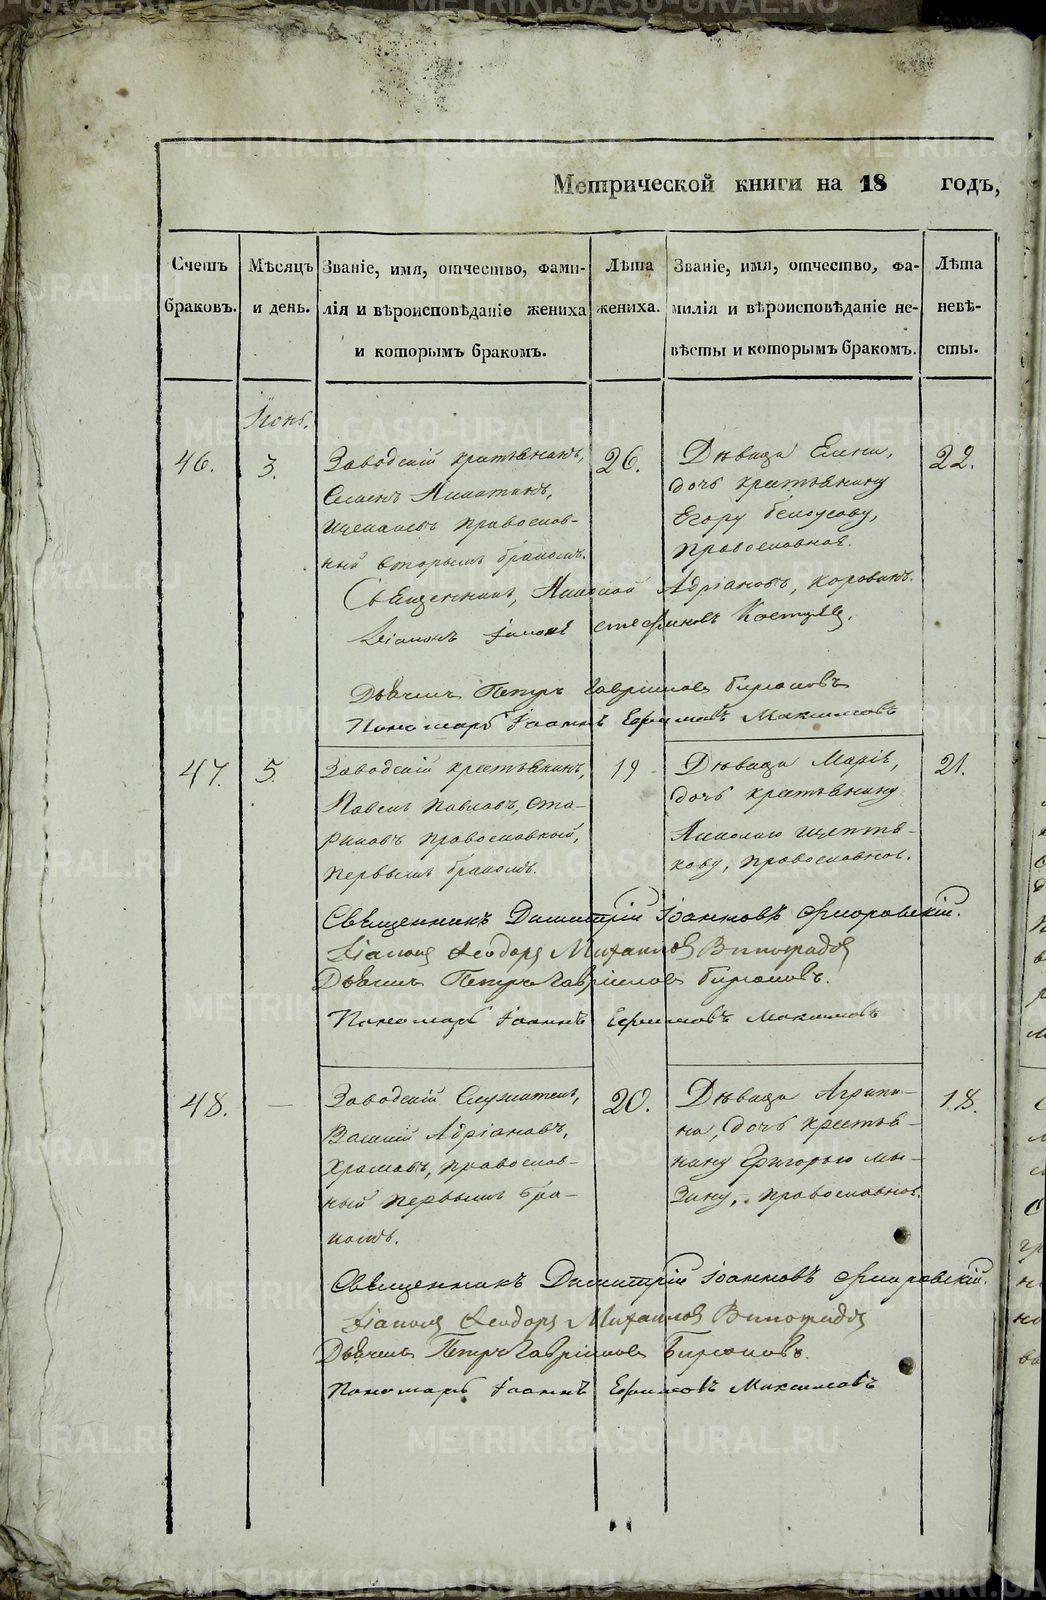 Метрической книги на 18 годъ,
Счетъ браковъ.
Мѣсяцъ и день.
Званіе, имя, отчество, фами-
лія и вѣроисповѣданіе жениха
и которымъ бракомъ.
Лѣта жениха.
Званіе, имя, отчество, фа-
милія и вѣроисповѣданіе не-
вѣсты и которымъ бракомъ.
Лѣта невѣ-
сты.
46.
3.
Заводскій крестьянинъ,
православ-
ный вторымъ бракомъ.
26.
Дѣвица Елена,
дочь крестьянину
Егору Белоусову,
православная.
22.
Священникъ, Николай Адріановъ, Коровинъ.
Діаконъ Іаковъ Стефановъ
Дьячекъ Петръ Гавриловъ Бирюковъ
Пономарь Іоаннъ Ефимовъ Максимовъ
47.
5.
Заводскій крестьянинъ,
Павелъ Павловъ, Ста-
риковъ православный,
первымъ бракомъ.
19
Дѣвица Марія,
дочь крестьянину
Николаю Щепте-
кову, православное.
21.
Священникъ Димитрій Іоанновъ Флоровскій.
Діаконъ Ѳеодоръ Михаиловъ Виноградовъ
Дьячекъ Петръ Гавриловъ Бирюковъ.
Пономарь Іоаннъ Ефимовъ Максимовъ
48.
—
Заводскій Служитель,
Василій Адріановъ,
Храмовъ, православ-
ный первымъ бра-
комъ.
20.
Дѣвица Агрипи-
на, дочь крестья-
нину Григорью Мы-
зину, православное.
18.
Священникъ Димитрій Іоанновъ Флоровскій.
Діаконъ Ѳеодоръ Михаиловъ Виноградовъ
Дьячекъ Петръ Гавриловъ Бирюковъ.
Пономарь Іоаннъ Ефимовъ Максимовъ
METRIKI.GASO-URAL.RU